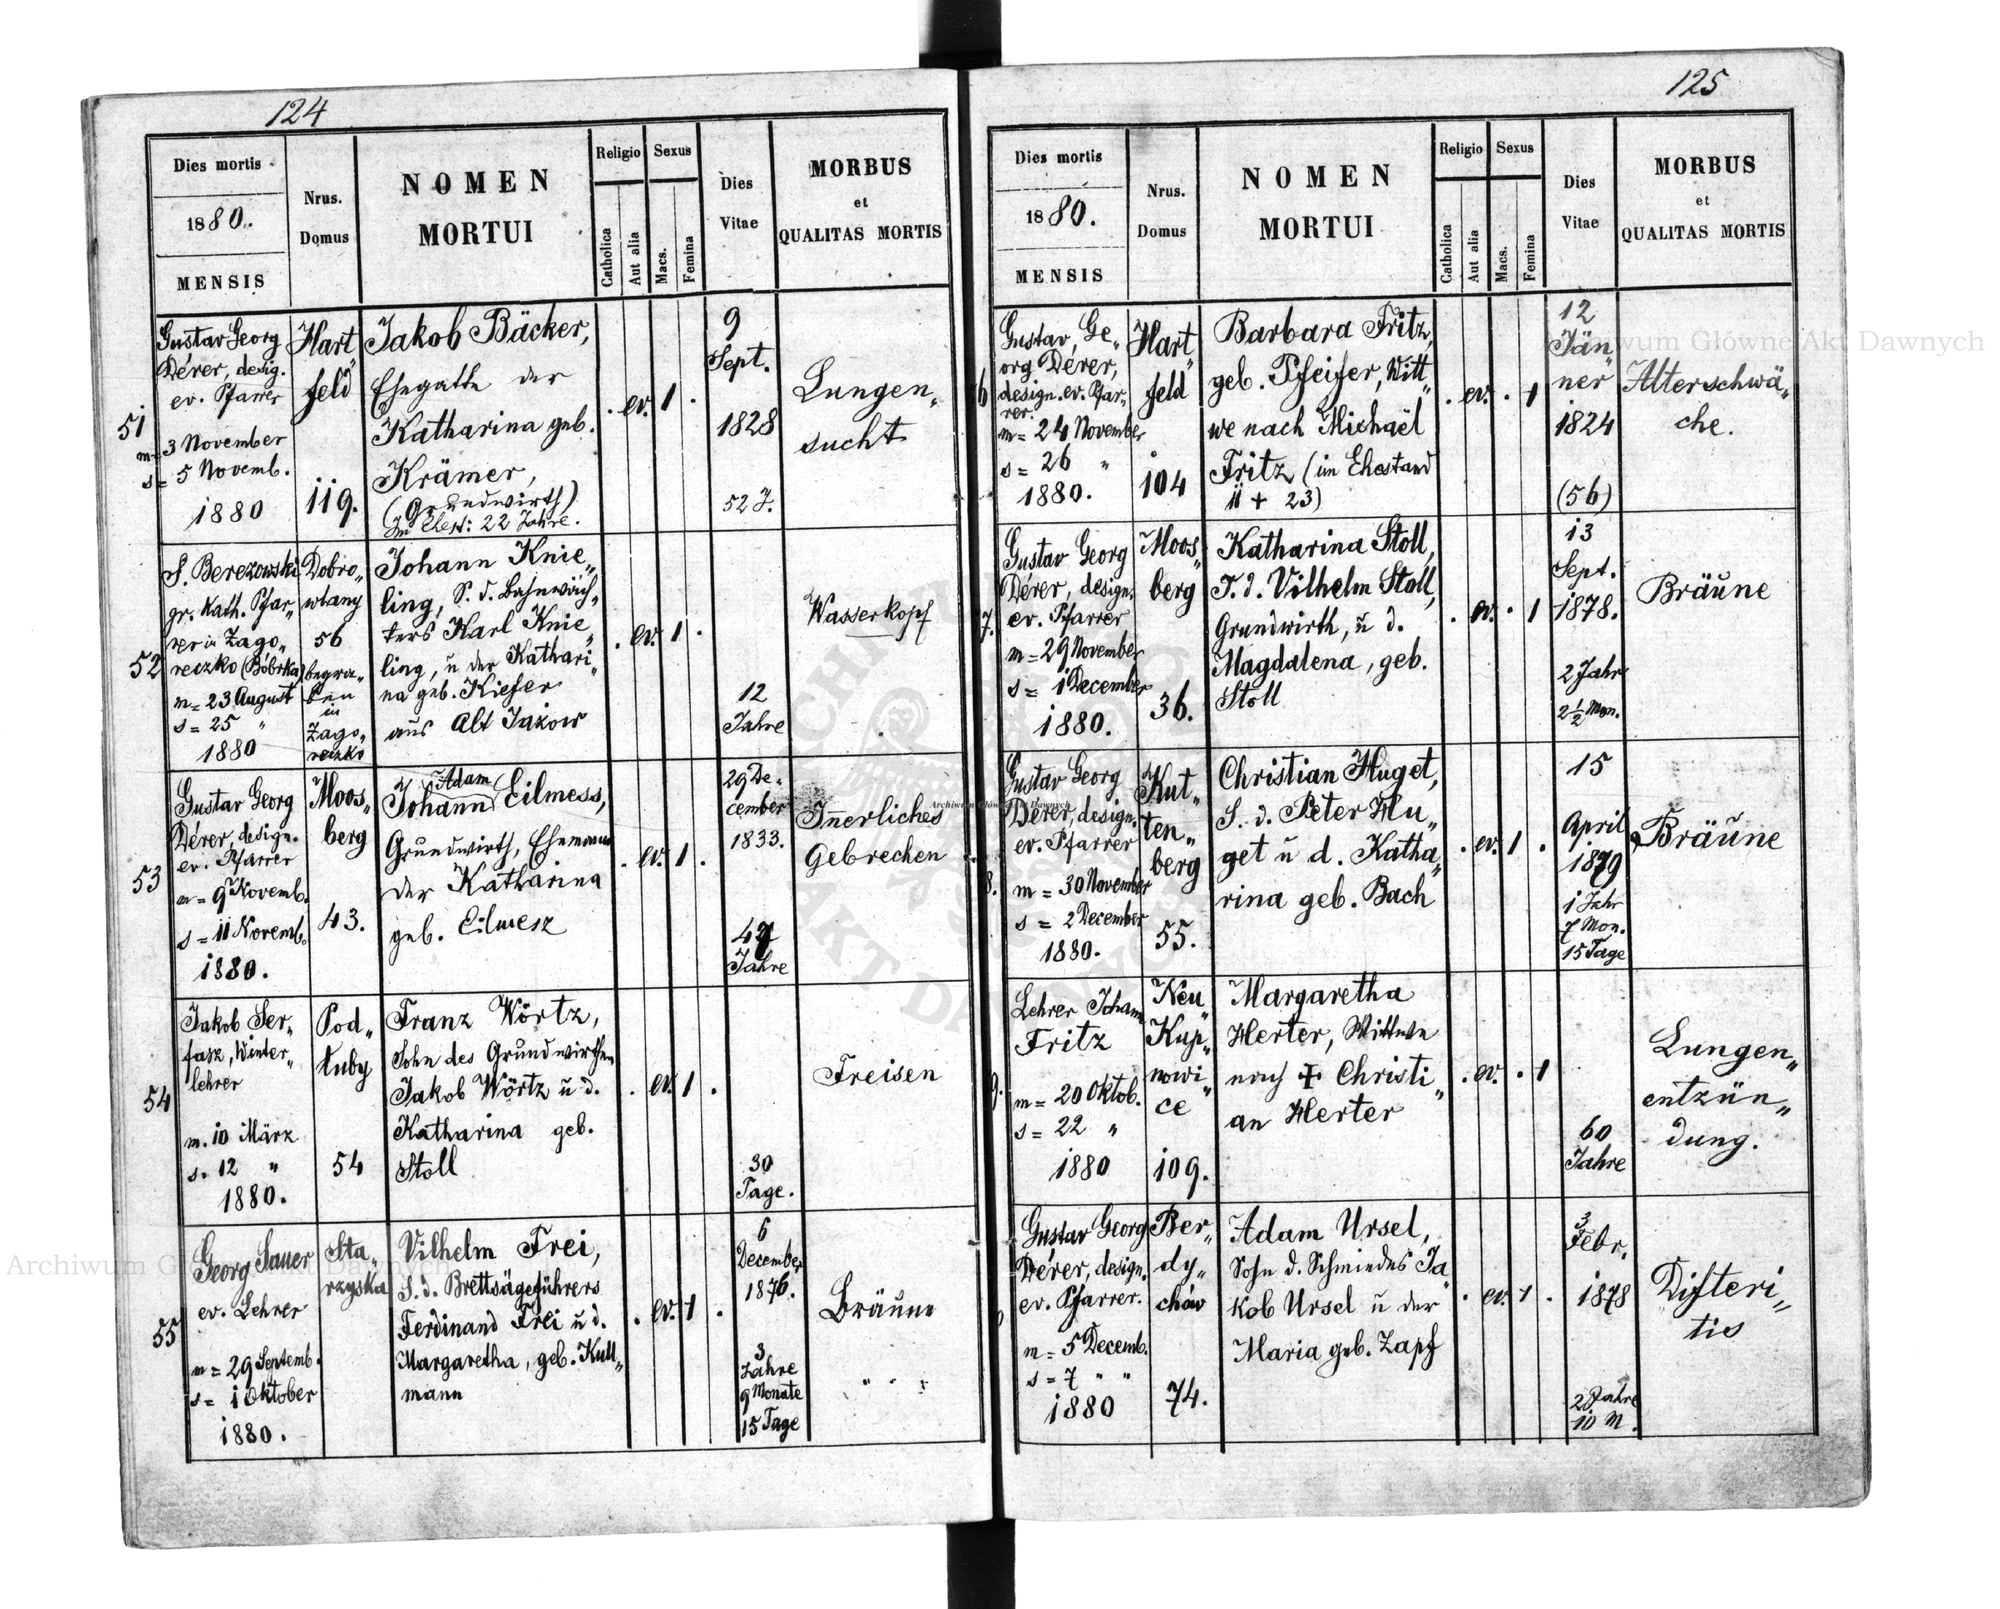 124
Dies mortis
1880.
MENSIS
Nrus.
Domus
NOMEN
MORTUI
Religio
Catholica
Aut alia
Sexus
Macs.
Femina
Dies
Vitae
MORBUS
et
QUALITAS MORTIS
51
Gustav Georg
Dérer, desig.
ev. Pfarrer
m= 3 November
s= 5 Novemb.
1880
Hart„
feld
119.
Jakob Bäcker,
Ehegatte der
Katharina geb.
Krämer,
(Grundwirth)
Im Ehest: 22 Jahre.
. ev. 1 .
9
Sept.
1828
52 J.
Lungen„
sucht
52
S. Berezowski
gr. Kath. Pfar„
rer in Zago„
reczko (Bóbrka)
m= 23 August
s= 25 "
1880
Dobro„
wlany
56
begra„
ben
in
Zago„
reczko
Johann Knie„
ling, S. d. Bahnwäch„
ters Karl Knie„
ling, u der Kathari„
na geb. Kiefer
aus Alt Jazow
. ev. 1 .
12
Jahre
Wasserkopf
53
Gustav Georg
Dérer, design.
ev. Pfarrer
m= 9 Novemb.
s= 11 Novemb.
1880.
Moos„
berg
43.
Adam
Johann Eilmess,
Grundwirth, Ehemann
der Katharina
geb. Eilmesz
. ev. 1 .
29 De„
cember
1833.
47
Jahre
Innerliches
Gebrechen
54
Jakob Ser„
fasz, Winter„
lehrer
m. 10 März
s. 12 "
1880.
Pod„
łuby
54
Franz Wörtz,
Sohn des Grundwirthen
Jakob Wörtz u d.
Katharina geb.
Stoll
. ev. 1 .
30
Tage.
Freisen
55
Georg Sauer
ev. Lehrer
m= 29 Septemb.
s= 1 Oktober
1880.
Sta„
rzyska
Vilhelm Frei,
S. d. Brettsägeführers
Ferdinand Frei u d.
Margaretha, geb. Kull„
mann
. ev. 1 .
6
December
1876.
3
Jahre
9 Monate
15 Tage
Bräune
125
Dies mortis
1880.
MENSIS
Nrus.
Domus
NOMEN
MORTUI
Religio
Catholica
Aut alia
Sexus
Macs.
Femina
Dies
Vitae
MORBUS
et
QUALITAS MORTIS
6
Gustav, Ge„
org Dérer,
design. ev. Pfar„
rer.
m= 24 November
s= 26 "
1880.
Hart„
feld
104
Barbara Fritz,
geb. Pfeifer, Witt„
we nach Michaël
Fritz (im Ehestand
11 + 23)
. ev. . 1
12
Jän„
ner
1824
(56)
Alterschwä„
che.
7.
Gustav Georg
Dérer, design.
ev. Pfarrer
m= 29 November
s= 1 December
1880.
Moos„
berg
36.
Katharina Stoll,
T. d. Vilhelm Stoll,
Grundwirth, u d.
Magdalena, geb.
Stoll
. ev. . 1
13
Sept.
1878.
2 Jahr
2½ Mon.
Bräune
8.
Gustav Georg
Dérer, design.
ev. Pfarrer
m = 30 November
s = 2 December
1880.
Kut„
ten„
berg
55.
Christian Huget,
S. d. Peter Hu„
get u d. Katha„
rina geb. Bach
. ev. 1 .
15
April
1879
1 Jahr
7 Mon.
15 Tage
Bräune
9.
Lehrer Johann
Fritz
m= 20 Oktob.
s= 22 "
1880
Neu„
Kup„
nowi„
ce
109.
Margaretha
Herter, Wittwe
nach + Christi„
an Herter
. ev. . 1
60
Jahre
Lungen„
entzün„
dung.
Gustav Georg
Dérer, design.
ev. Pfarrer.
m= 5 Decemb.
s= 7 " "
1880
Ber„
dy„
chów
74.
Adam Ursel,
Sohn d. Schmiedes Ja„
kob Ursel u der
Maria geb. Zapf
. ev. 1 .
3
Febr.
1878
2 Jahre
10 M.
Difteri„
tis
Archiwum Główne Akt Dawnych
Archiwum Główne Akt Dawnych
Archiwum Główne Akt Dawnych